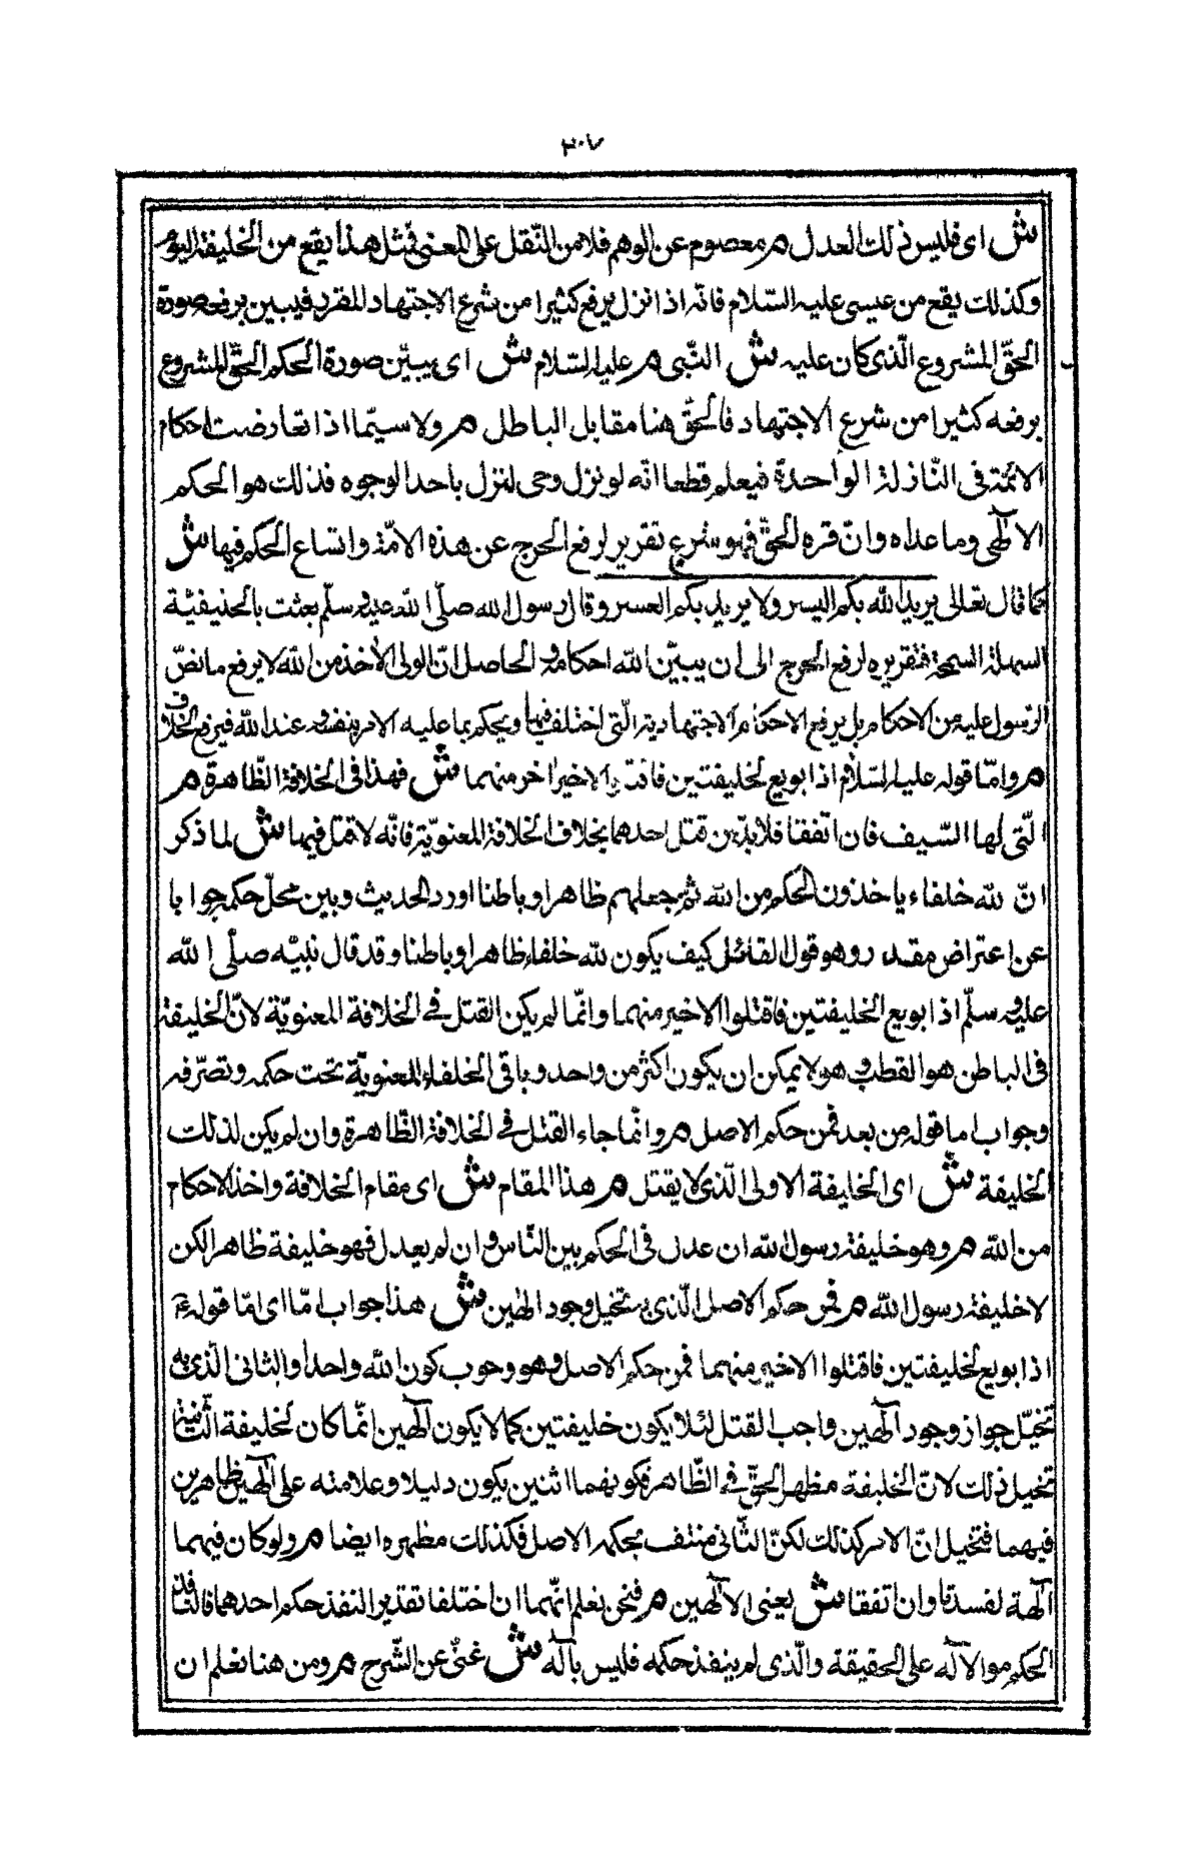 ٣٠٧
ش اى فليس ذلك العدل م معصوم عن الوهم فلا من النّقل على المعنى فمثل هذا يقع من الخليفة اليوم
وكذلك يقع من عيسى عليه السّلام فانّه اذا نزل يرفع كثيرا من شرع الاجتهاد المقرر فيبين برفعه صورة
الحقّ المشروع الّذى كان عليه ش النّبى م عليه السّلام ش اى يبيّن صورة الحكم الحقّ المشروع
برفعه كثيرا من شرع الاجتهاد فالحقّ هنا مقابل الباطل م ولا سيّما اذا تعارضت احكام
الائمّة فى النّازلة الواحدة فيعلم قطعا انّه لو نزل وحى لنزل باحد الوجوه فذلك هو الحكم
الالٓهى وما عداه وانّ قرره الحقّ فهو شرع تقرير لرفع الحرج عن هذه الامّة واتساع الحكم فيها ش
كما قال تعالى يريد الله بكم اليسر ولا يريد بكم العسر وقال رسول الله صلّى الله عليه وسلّم بعثت بالحنيفيّة
السهلة السمحة فتقريره لرفع الحرج الى ان يبيّن الله احكامه والحاصل انّ الولى الآخذ من الله لا يرفع ما نصّ
الرسول عليه من الاحكام بل يرفع الاحكام الاجتهادية الّتى اختلف فيها ويحكم بما عليه الامر بنفسه عند الله فيرفع الخلاف
م وامّا قوله عليه السّلام اذا بويع لخليفتين فاقتلوا الاخير اخر منهما ش فهذا فى الخلافة الظّاهرة م
الّتى لها السّيف فان اتفقا فلا بدّ من قتل احدهما بخلاف الخلافة المعنويّة فانّه لا قتل فيها ش لما ذكر
انّ لله خلفاء ياخذون الحكم من الله ثم جعلهم ظاهرا وباطنا اورد الحديث وبين محلّ حكمه جوابا
عن اعتراض مقدر وهو قول القائل كيف يكون لله خلفاء ظاهرا وباطنا وقد قال نبيّه صلّى الله
عليه وسلّم اذا بويع الخليفتين فاقتلوا الاخير منهما وانّما لم يكن القتل فى الخلافة المعنويّة لانّ الخليفة
فى الباطن هو القطب وهو لا يمكن ان يكون اكثر من واحد وباقى الخلفاء المعنويّة تحت حكمه وتصرّفه
وجواب اما قوله من بعد فمن حكم الاصل م وانّما جاء القتل فى الخلافة الظّاهرة وان لم يكن لذلك
الخليفة ش اى الخليفة الاولى الّذى لا يقتل م هذا المقام ش اى مقام الخلافة واخذ الاحكام
من الله م وهو خليفة رسول الله ان عدل فى الحكم بين النّاس وان لم يعدل فهو خليفة ظاهرا لكن
لا خليفة رسول الله م فمن حكم الاصل الّذى به تخيل وجود الهين ش هذا جواب امّا اى امّا قوله ع
اذا بويع لخليفتين فاقتلوا الاخير منهما فمن حكم الاصل وهو وجوب كون الله واحدا والثانى الّذى به
تخيّل جواز وجود الٓهين واجب القتل لئلا يكون خليفتين كما لا يكون الٓهين انّما كان لخليفة الثّانى
تخيل ذلك لانّ الخليفة مظهر الحقّ فى الظّاهر فكونهما اثنين يكون دليلا وعلامته على الٓهين ظاهرين
فيهما فتخيل انّ الامر كذلك لكنّ الثّانى منتف بحكم الاصل فكذلك مظهره ايضا م ولو كان فيهما
آلهة لفسدتا وان اتفقا ش يعنى الالٓهين م فنحن نعلم انّهما ان اختلفا تقديرا لنفذ حكم احدهما فالنّافذ
الحكم هو الالٓه على الحقيقة والّذى لم ينفذ حكمه فليس بالٓه ش غنىّ عن الشّرح م ومن هنا نعلم ان